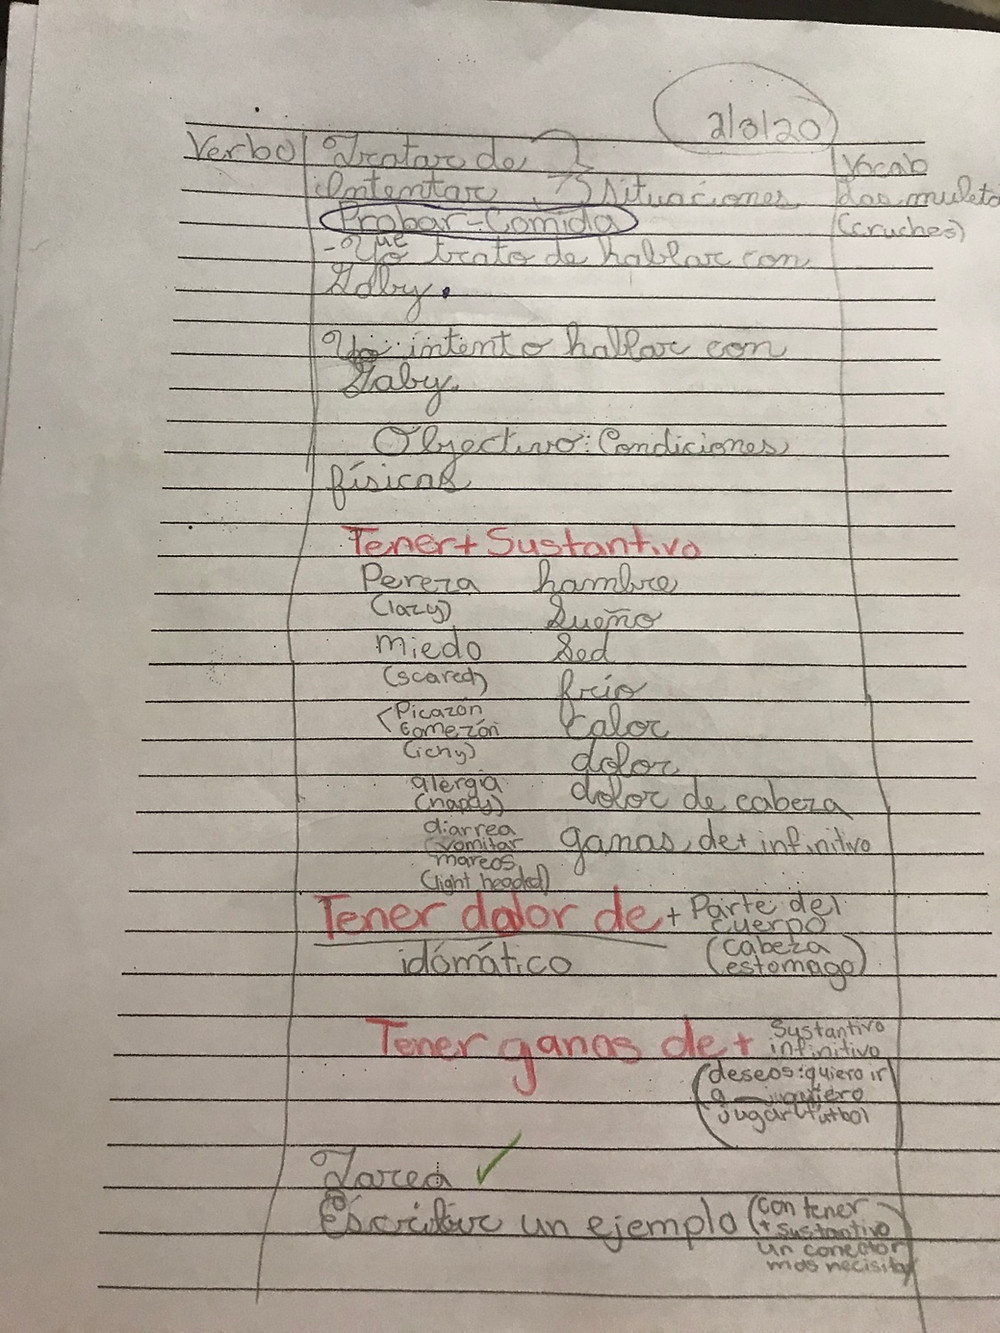 2/3/20
Verbo Tratar de Vocab
Intentar situaciones Las muleta
Probar - Comida (cruches)
- Que Yo trato de hablar con
Gaby.
Yo intento hablar con
Gaby.
Objectivo: Condiciones
físicas
Tener + Sustantivo
Pereza hambre
(lazy) Sueño
miedo Sed
(scared) frío
Picazón calor
Comezón
(ichy) dolor
alergia dolor de cabeza
diarrea
vomitar ganas de + infinitivo
mareos
(light headed)
Tener dolor de + Parte del
cuerpo
idómático (cabeza
estomago)
Tener ganas de + Sustantivo
infinitivo
(deseos: quiero ir
a quiero
jugar futbol
Tarea ✓
Escribir un ejemplo (con tener
+ sustantivo
un conector
mas necisita)